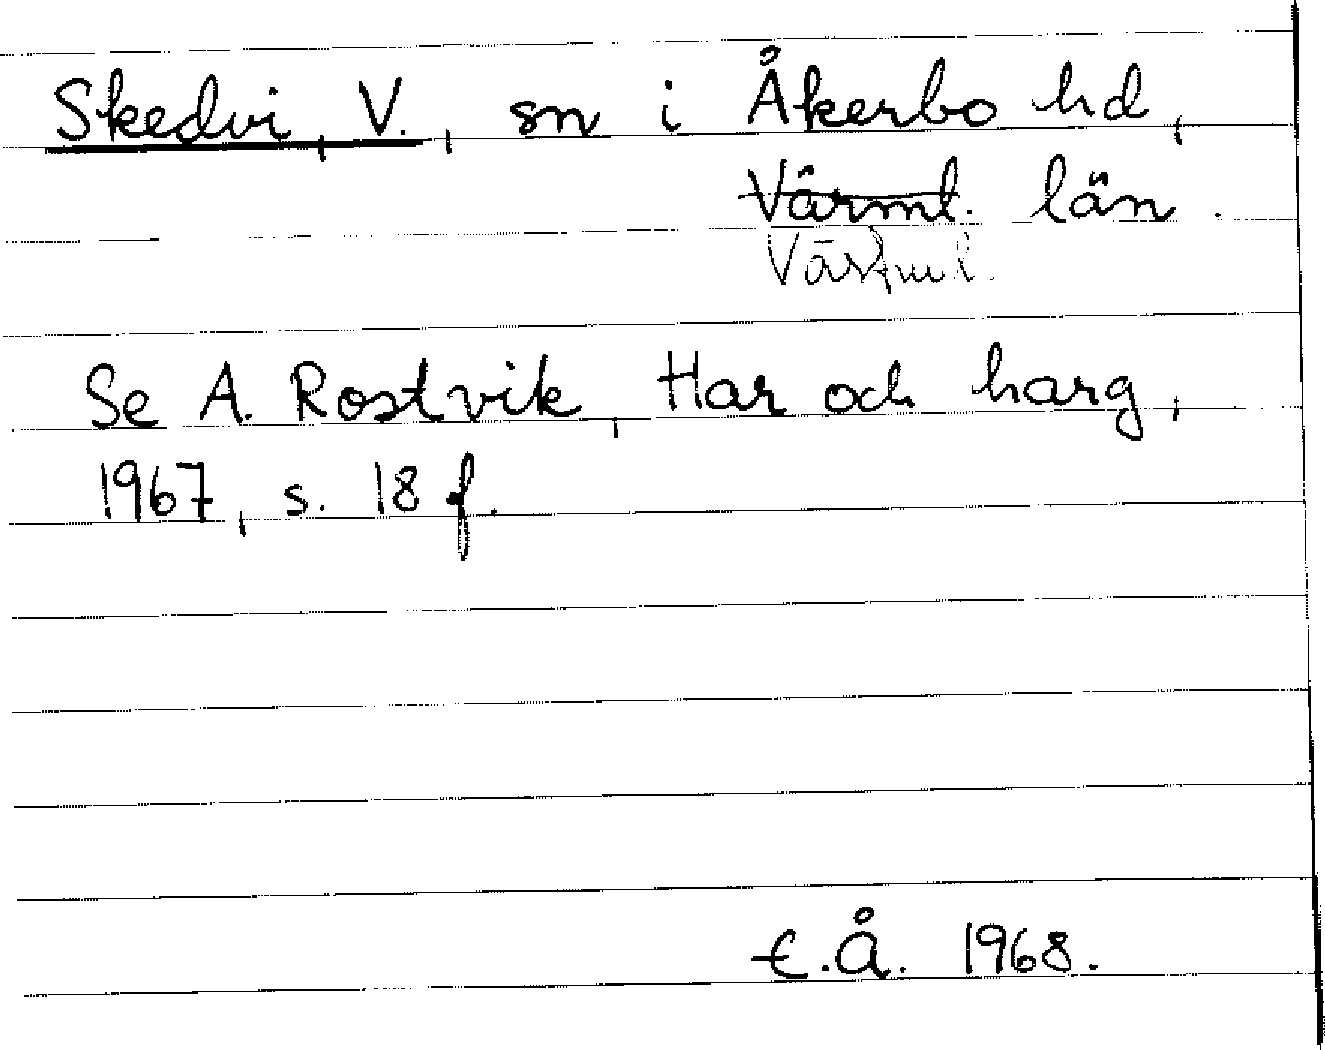 Skedvi, V., sn i Åkerbo hd,
Värml. län.
Se A. Rostvik, Har och harg,
1967, s. 18 f.
E.Å. 1968.